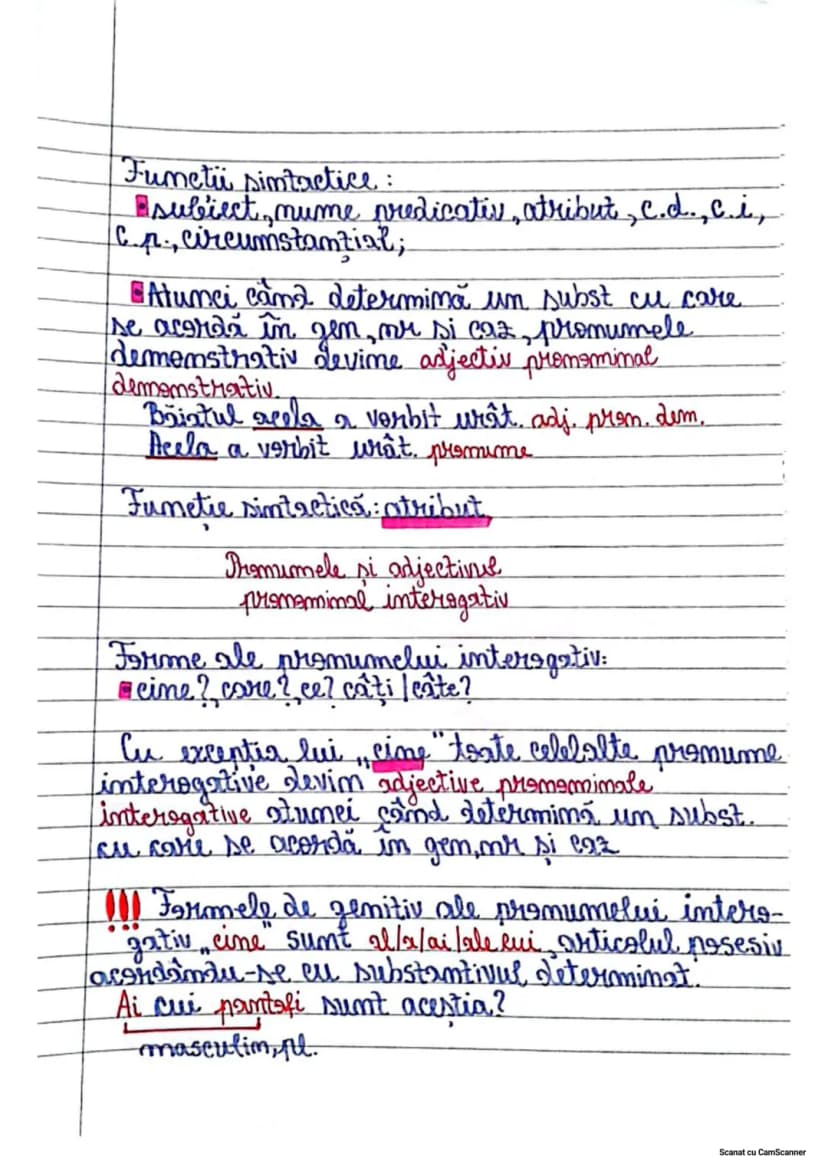 Funcții sintactice:
subiect, nume predicativ, atribut, c.d., c.i,
C.p., circumstanțial;
Atunci când determină un subst cu care
se acordă în gen, nr si caz, pronumele
demonstrativ devine adjectiv pronominal
demonstrativ.
Băiatul acela a vorbit urât. adj. pron. dem.
Acela a vorbit urât. pronume
Funcție sintactică: atribut
Pronumele și adjectivul
pronominal interogativ
Forme ale pronumelui interogativ:
cine?, care?, ce? câți/câte?
Cu excepția lui „cine" toate celelalte pronume
interogative devin adjective pronominale
interogative atunci când determină un subst.
cu care se acordă în gen, nr și caz
!!! Formele de genitiv ale pronumelui intero-
gativ „cine" sunt al/a/ai/ale cui, articolul posesiv
acordându-se cu substantivul determinat.
Ai cui pantofi sunt aceștia?
masculin, pl.
Scanat cu CamScanner